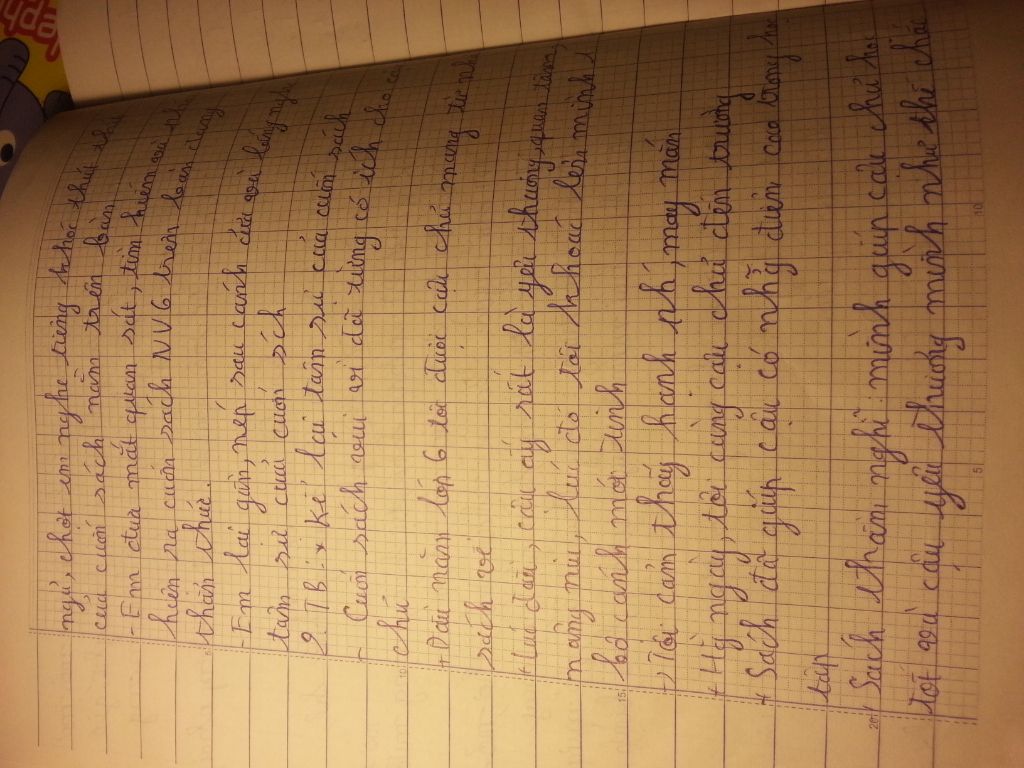 ngủ, chợt em nghe tiếng khóc thút thít
của cuốn sách nằm trên bàn
- Em đưa mắt quan sát, tìm hiểu và
hiện ra cuốn sách NV6 trên bàn đang
thổn thức.
- Em lại gần, nép sau cánh cửa với lắng nghe
tâm sự của cuốn sách
2. TB: * Kể lại tâm sự của cuốn sách
- Cuốn sách vui vì đã từng có ích cho cậu
chủ
+ Đầu năm lớp 6 tôi được cậu chủ mang từ nhà
sách về
+ Lúc đầu, cậu ấy rất là yêu thương, quan tâm
nâng niu, lúc đó tôi khoác lên mình 1
bộ cánh mới tinh
-, Tôi cảm thấy hạnh phúc, may mắn
+ Hằng ngày, tôi cùng cậu chủ đến trường
+ Sách đã giúp cậu có những điểm cao trong học
tập
+ Sách thầm nghĩ: mình giúp cậu chủ học
tốt và cậu yêu thương mình như thế chắc